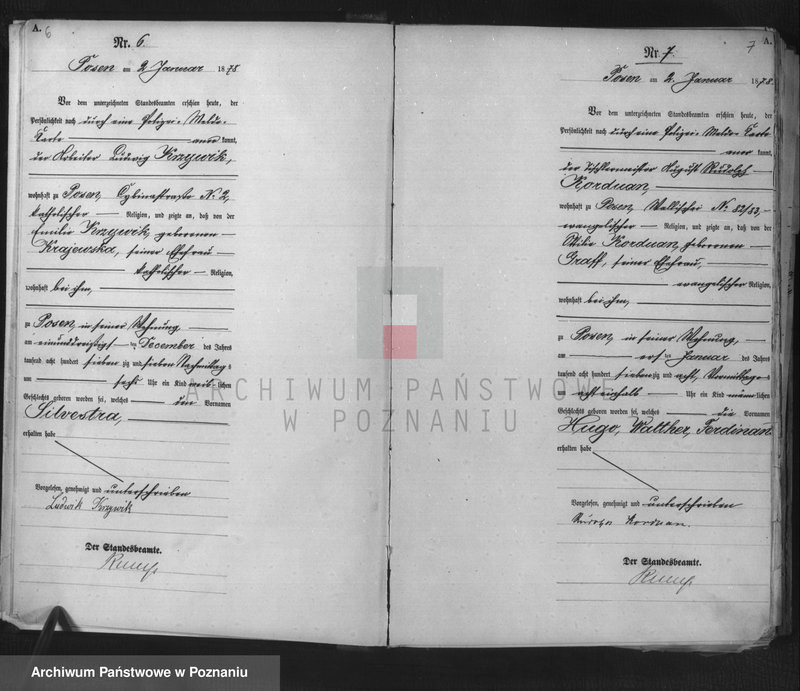 A. 6
Nr. 6.
Posen am 2 Januar 1878
Vor dem unterzeichneten Standesbeamten erschien heute, der
Persönlichkeit nach durch eine Polizei-Melde-
Karte kannt,
der Arbeiter Ludwig Krzywik,
wohnhaft zu Posen, Cybinastraße No 2,
katholischer Religion, und zeigte an, daß von der
Emilie Krzywik geborenen
Krajewska, seiner Ehefrau
katholischer Religion,
wohnhaft bei ihm,
zu Posen, in seiner Wohnung
am einunddreißigst ten December des Jahres
tausend acht hundert sieben zig und sieben Nachmittag s
um sechs Uhr ein Kind weib lichen
Geschlechts geboren worden sei, welches den Vornamen
Silvestra,
erhalten habe
Vorgelesen, genehmigt und unterschrieben
Ludwik Krzywik
Der Standesbeamte.
7 A.
Nr. 7.
Posen am 2. Januar 1878.
Vor dem unterzeichneten Standesbeamten erschien heute, der
Persönlichkeit nach durch eine Polizei-Melde-Karte
kannt,
der Tischlermeister August Rudolph
Korduan,
wohnhaft zu Posen Wallischei No. 52/53,
evangelischer Religion, und zeigte an, daß von der
Ottilie Korduan, geborenen
Graff, seiner Ehefrau,
evangelischer Religion,
wohnhaft bei ihm,
zu Posen, in seiner Wohnung,
am ersten Januar des Jahres
tausend acht hundert sieben zig und acht, Vormittags
um acht einhalb Uhr ein Kind männ lichen
Geschlechts geboren worden sei, welches die Vornamen
Hugo, Walther, Ferdinan
erhalten habe
Vorgelesen, genehmigt und unterschrieben
Korduan.
Der Standesbeamte.
ARCHIWUM PAŃSTWOWE
W POZNANIU
Archiwum Państwowe w Poznaniu